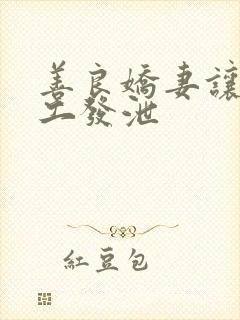 善良嬌妻讓
工發泄
紅豆包